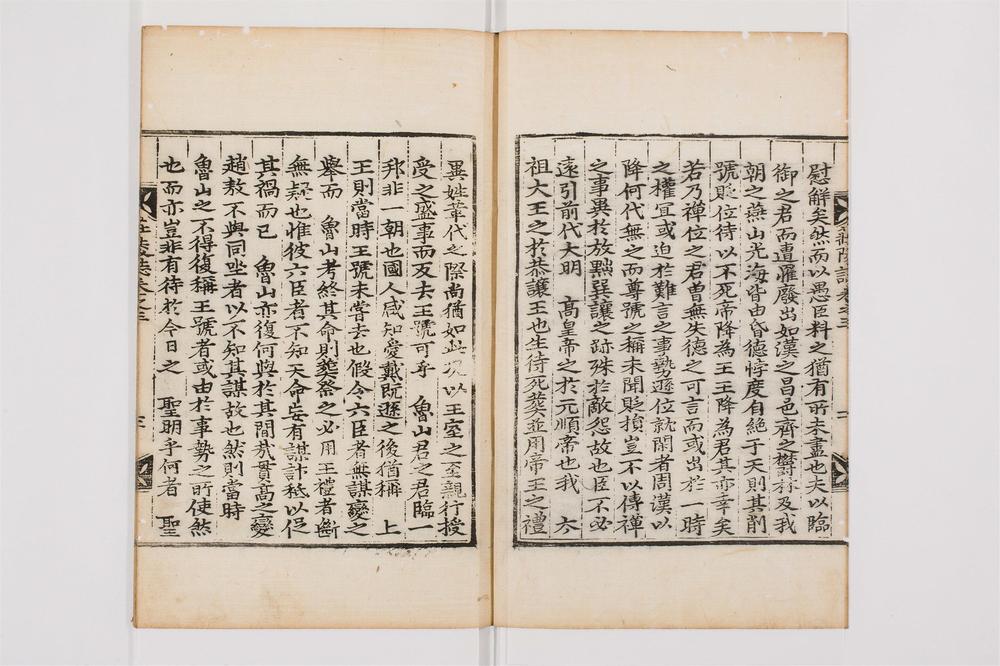 慰解矣然而以愚臣料之猶有所未盡也夫以臨
御之君而遭罹廢出如漢之昌邑齊之欝林及我
朝之燕山光海皆由昏德悖度自絶于天則其削
號貶位待以不死帝降為王王降為君其亦幸矣
若乃禪位之君曾無失德之可言而或出於一時
之權宜或迫於難言之事勢遜位就閑者周漢以
降何代無之而尊號之稱未聞貶損豈不以傳禪
之事異於放黜巽讓之跡殊於敵怨故也臣不必
遠引前代大明　高皇帝之於元順帝也我　太
祖大王之於恭讓王也生待死葬並用帝王之禮
異姓革代之際尚猶如此况以王室之至親行授
受之盛事而反去王號可乎　魯山君之君臨一
邦非一朝也國人咸知愛戴旣遜之後猶稱　上
王則當時王號未甞去也假令六臣者無謀變之
擧而　魯山考終其命則葬祭之必用王禮者斷
無疑也惟彼六臣者不知天命妄有謀計秪以促
其禍而已　魯山亦復何與於其間哉貫高之變
趙敖不與同坐者以不知其謀故也然則當時
魯山之不得復稱王號者或由於事勢之所使然
也而亦豈非有待於今日之　聖明乎何者　聖
莊陵誌卷之三